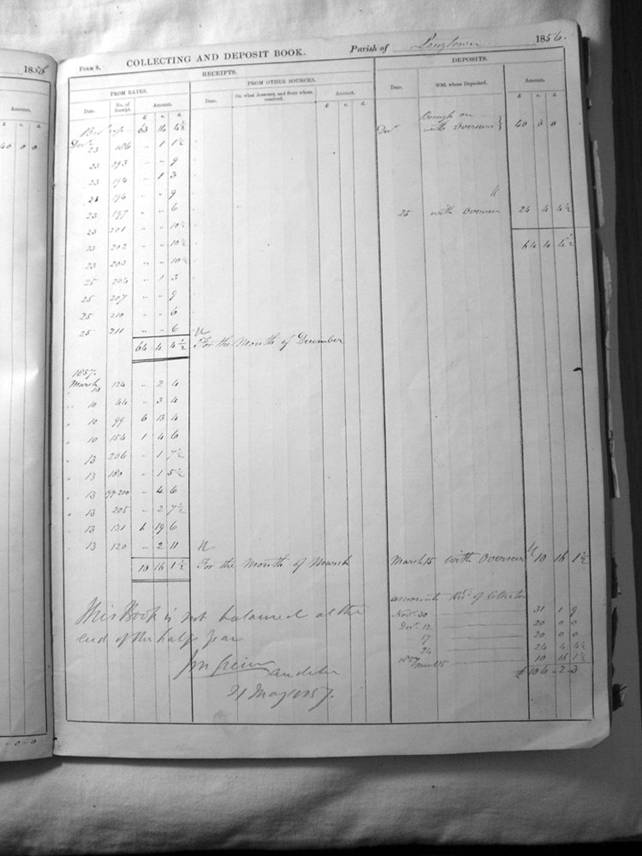 1855
Amount.
£ s. d.
40 0 0
0-0-0
FORM 8.
COLLECTING AND DEPOSIT BOOK.
Parish of Longtown 1856.
RECEIPTS.
DEPOSITS.
FROM RATES.
FROM OTHER SOURCES.
Date.
No. of Receipt.
Amount.
Date.
On what Account, and from whom received.
Amount.
Date.
With whom Deposited.
Amount.
£ s. d.
£ s. d.
£ s. d.
Brot up 63
Decr 23 186 - 1 1½
23 193 - - 9
23 194 - 1 3
23 196 - - 9
23 197 - - 6
23 201 - - 10½
23 202 - - 10½
23 203 - - 10½
25 204 - 1 3
25 207 - - 9
25 210 - - 6
25 211 - - 6
64 4 4½ For the Month of December
Decr Brought on with Overseer } 40 0 0
25 with Overseer 24 4 4½
64 4 4½
1857.
March 10 124 - 2 4
" 10 44 - 3 4
" 10 99 6 13 4
" 10 154 1 4 6
" 13 206 - 1 7½
" 13 180 - 1 5½
" 13 99 200 - 4 6
" 13 205 - 2 7½
" 13 131 1 19 6
" 13 120 - 2 11
10 16 1½ For the Month of March
March 15 with Overseer 10 16 1½
This Book is not balanced at the
end of the half year
Auditor
21 May 1857.
amount of Collector
Novr 30 31 1 9
Decr 12 20 0 0
17 20 0 0
24 24 4 4½
1857 March 15 10 16 1½
£ 106 - 2 - 3